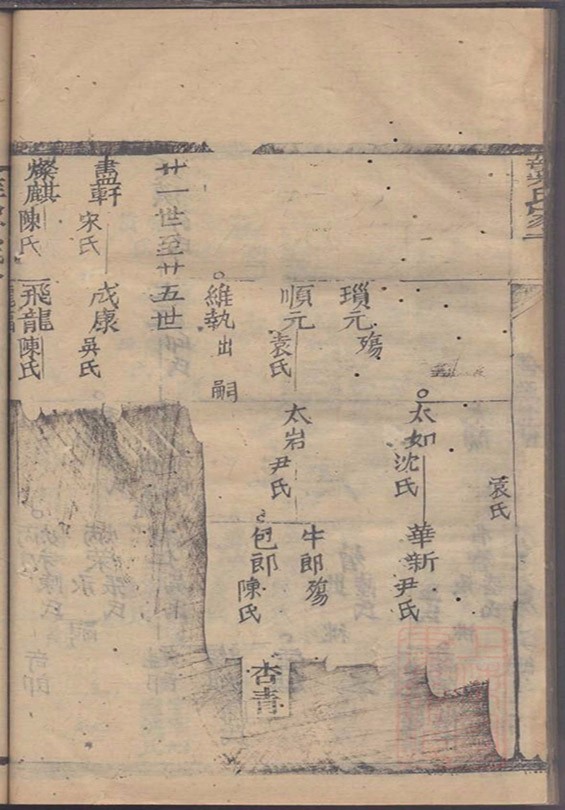 袁氏
太如沈氏
華新尹氏
瑣元殤
順元袁氏
太岩尹氏
牛郎殤
包郎陳氏
杏青
維執出嗣
廿一世至廿五世
盡軒宋氏
成康吳氏
燦麒陳氏
飛龍陳氏